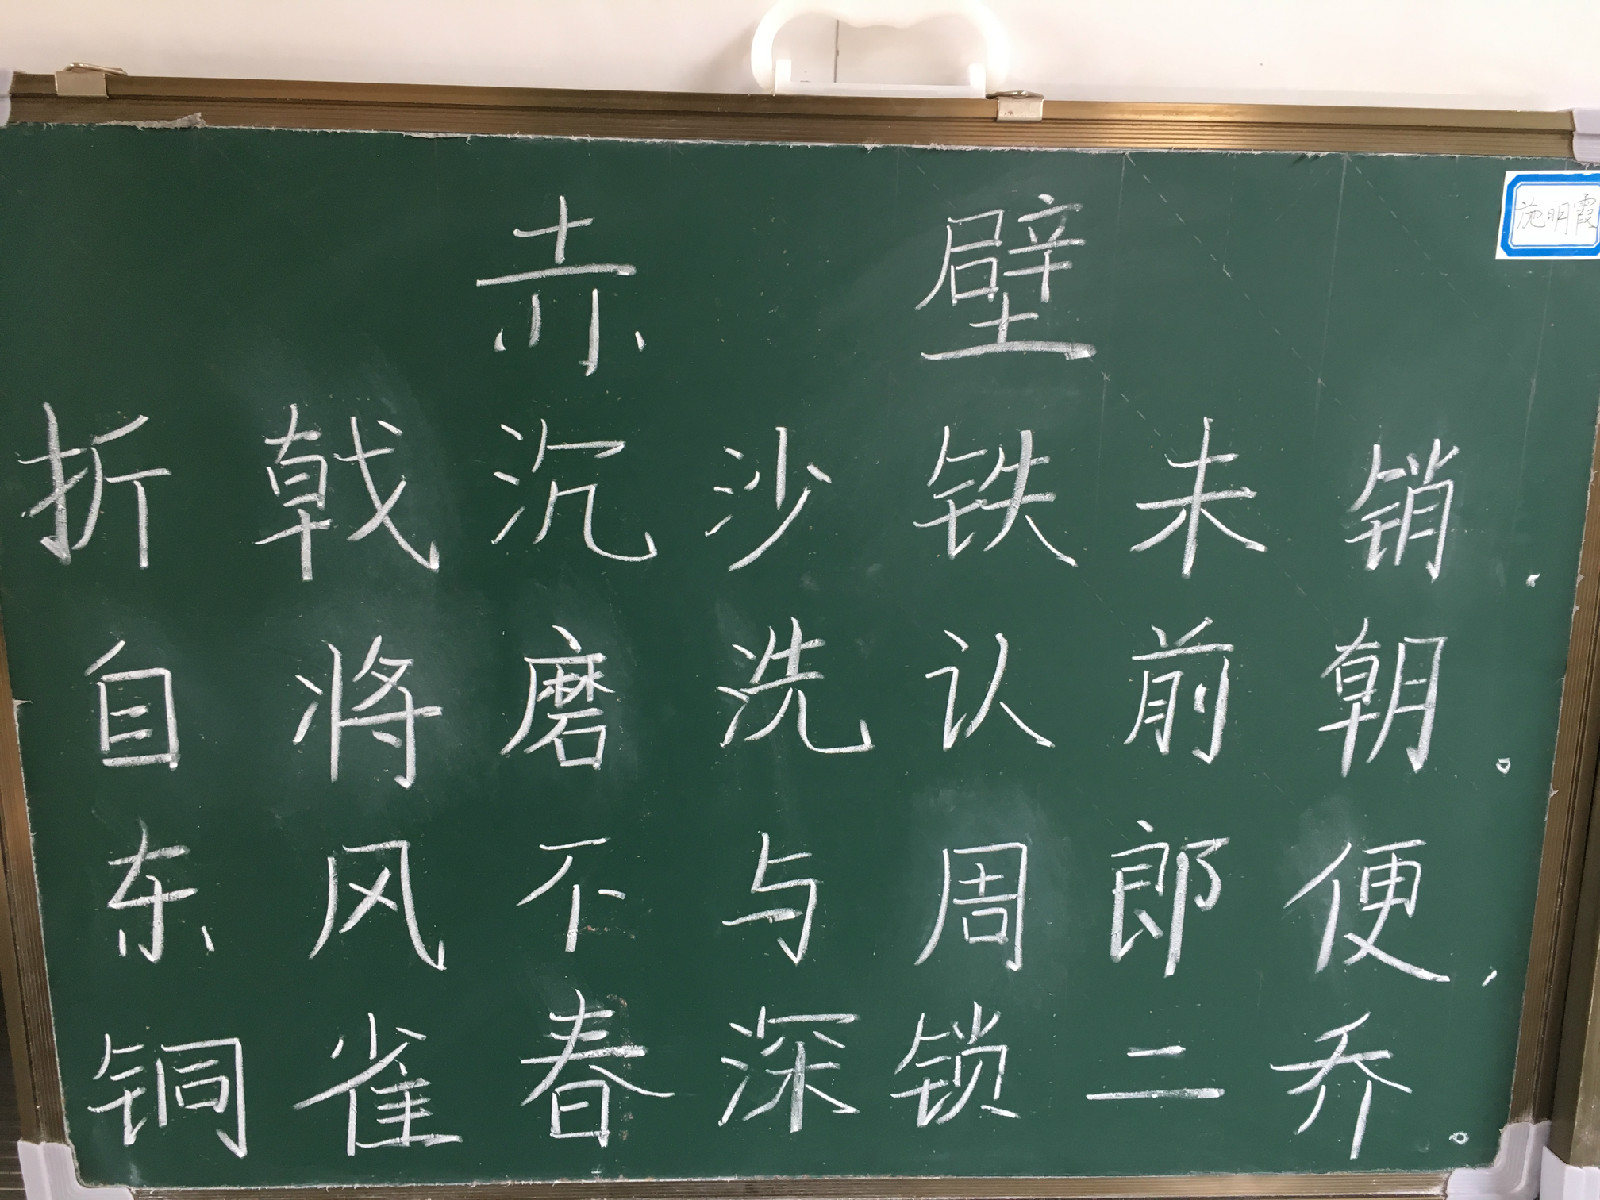 施明霞
赤壁
折戟沉沙铁未销，
自将磨洗认前朝。
东风不与周郎便，
铜雀春深锁二乔。